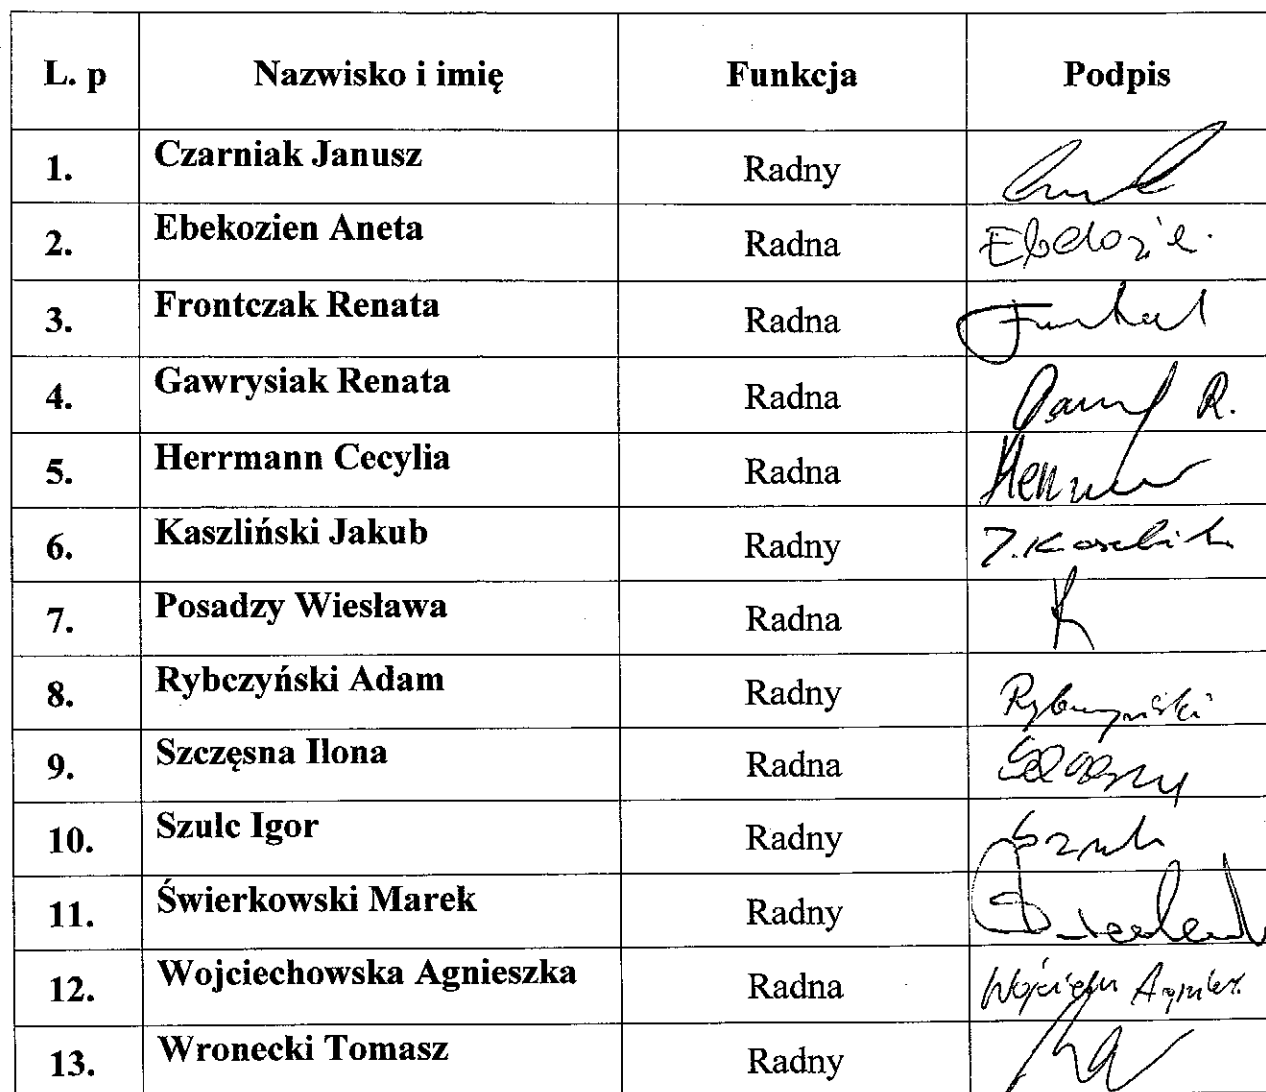 L. p Nazwisko i imię Funkcja Podpis
1. Czarniak Janusz Radny
2. Ebekozien Aneta Radna
3. Frontczak Renata Radna
4. Gawrysiak Renata Radna R.
5. Herrmann Cecylia Radna
6. Kaszliński Jakub Radny
7. Posadzy Wiesława Radna
8. Rybczyński Adam Radny Rybczyński
9. Szczęsna Ilona Radna
10. Szulc Igor Radny
11. Świerkowski Marek Radny
12. Wojciechowska Agnieszka Radna
13. Wronecki Tomasz Radny